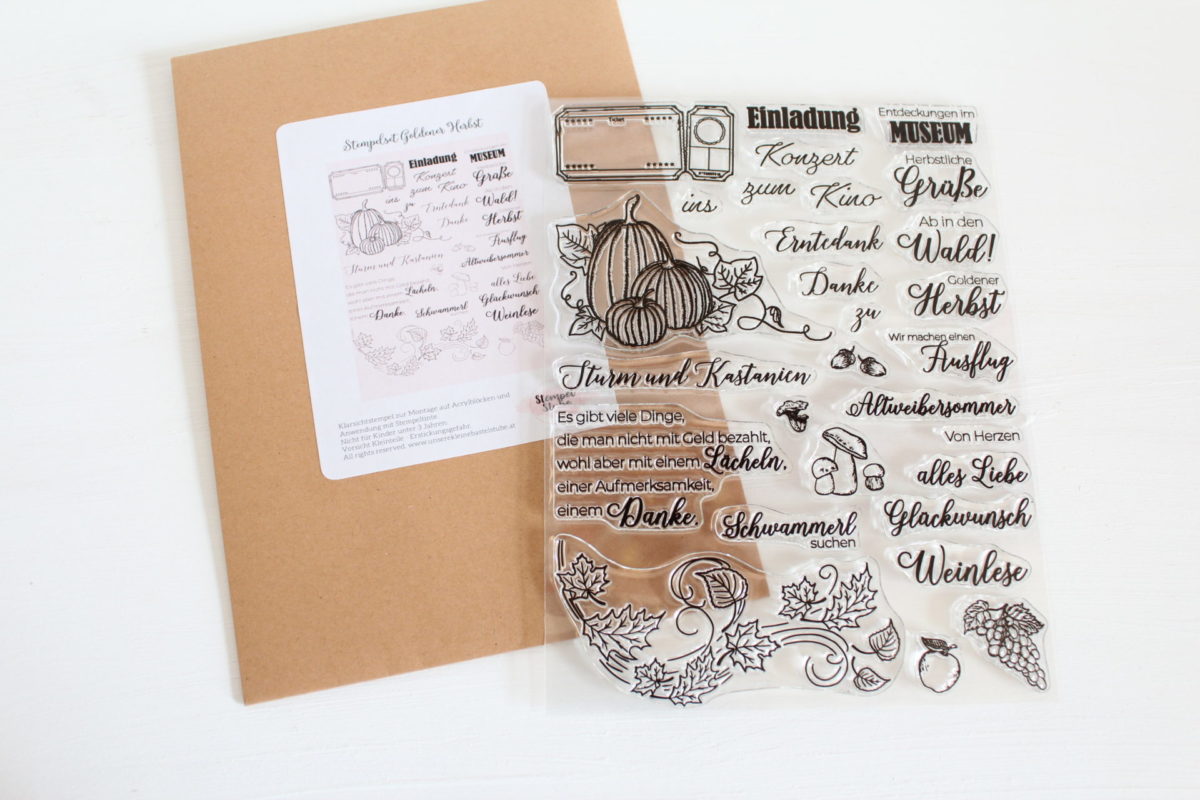 Stempelset Goldener Herbst
Einladung
MUSEUM
Konzert
zum Kino
Grüße
ins
zu
Erntedank
Wald!
Danke
Herbst
Ausflug
Sturm und Kastanien
Altweibersommer
Es gibt viele Dinge,
die man nicht mit Geld
wohl aber mit einem
Lächeln,
Von Herzen
alles Liebe
Danke.
Schwammerl
Glückwunsch
Weinlese
Klarsichtstempel zur Montage auf Acrylblöcken und
Anwendung mit Stempeltinte.
Nicht für Kinder unter 3 Jahren.
Vorsicht Kleinteile - Erstickungsgefahr.
All rights reserved. www.unserekleinebastelstube.at
Stempel
Ticket
Einladung
Entdeckungen im
MUSEUM
Konzert
zum
Kino
ins
Herbstliche
Grüße
Erntedank
Ab in den
Wald!
Danke
zu
Goldener
Herbst
Wir machen einen
Ausflug
Sturm und Kastanien
Altweibersommer
Es gibt viele Dinge,
die man nicht mit Geld bezahlt,
wohl aber mit einem Lächeln,
einer Aufmerksamkeit,
einem Danke.
Von Herzen
alles Liebe
Schwammerl
suchen
Glückwunsch
Weinlese